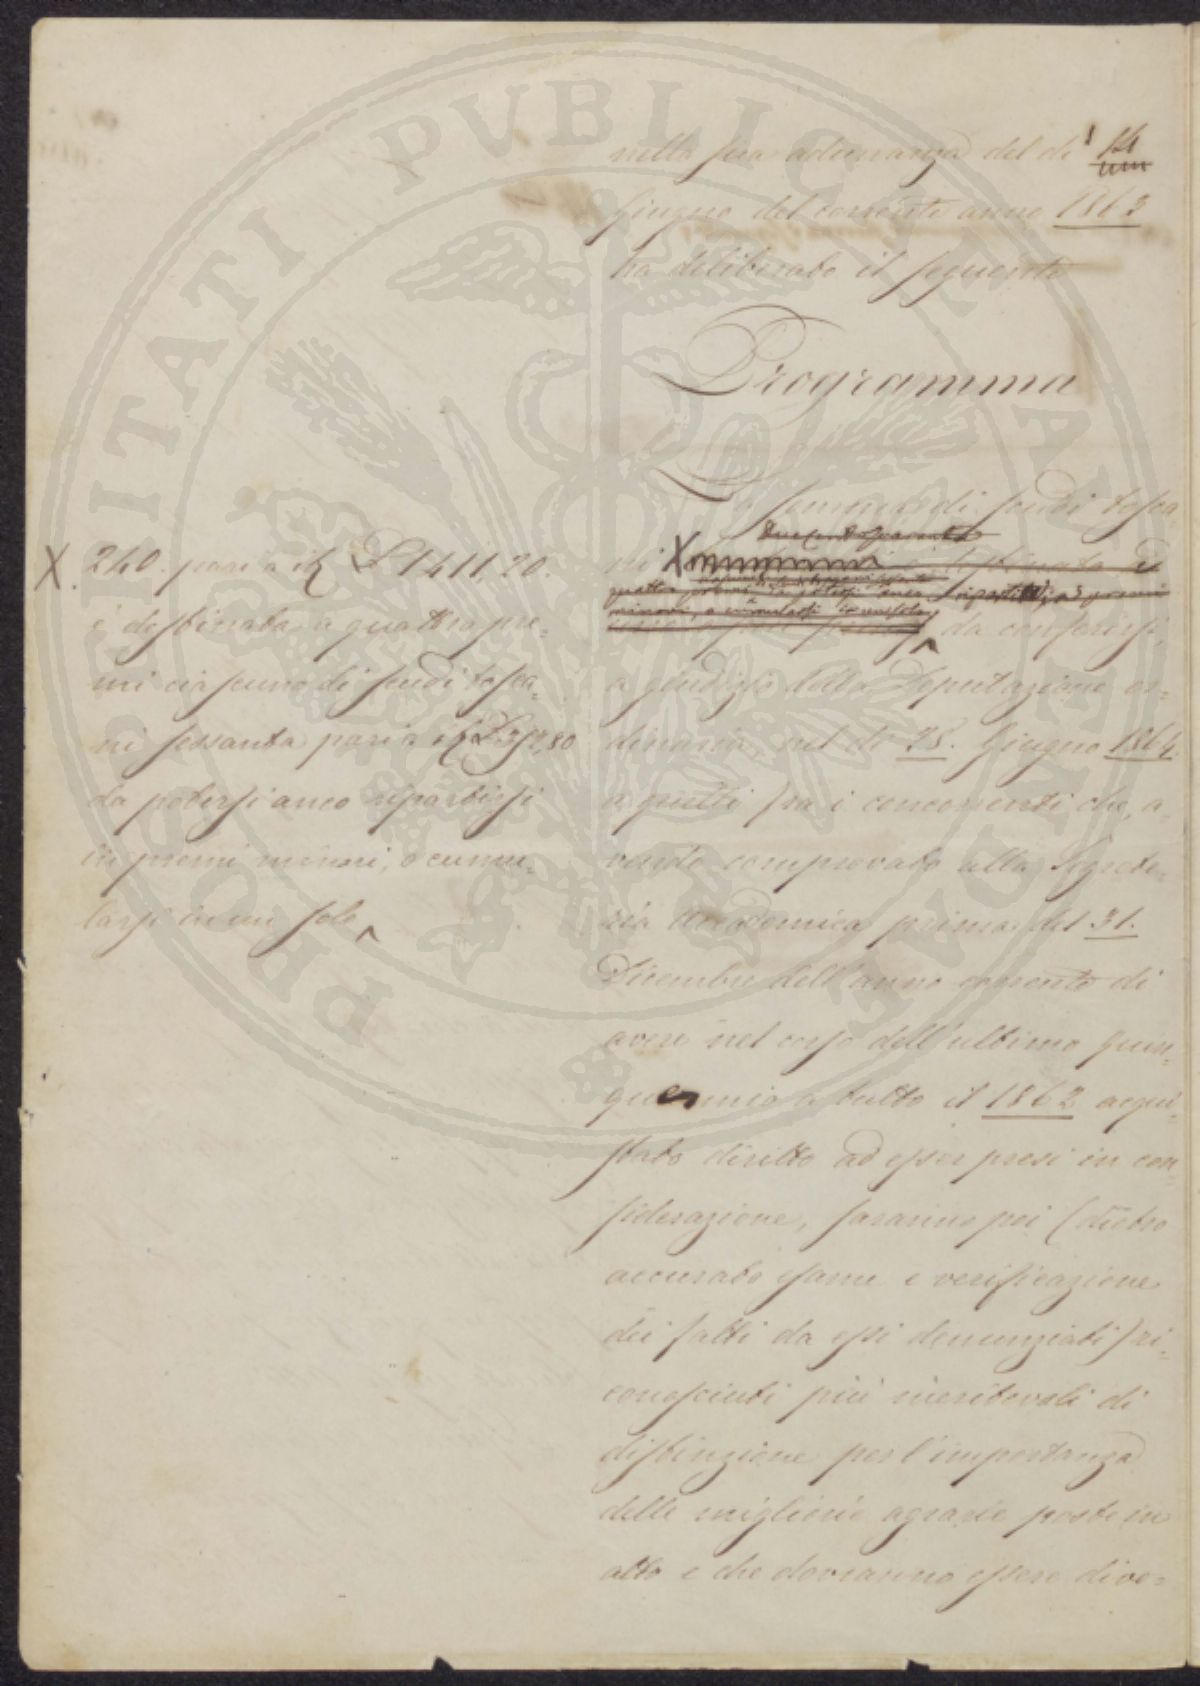 PROSPERITATI PUBLICAE AUGENDAE
nella sua adunanza del dì 14
Giugno del corrente anno 1863
ha deliberato il seguente
Programma
La somma di scudi tosca=
duecentosessanta
ni X è destinata a
quattro premi da potersi anco ripartirsi in premi
minori, o cumularsi in un solo
da conferirsi,
a giudizio della Deputazione or=
dinaria, nel dì 28. Giugno 1864
a quelli fra i concorrenti che, a=
vendo comprovato alla Segrete=
ria Accademica prima del 31.
Dicembre dell'anno corrente di
avere nel corso dell'ultimo quin=
quennio a tutto il 1862 acqui=
stato diritto ad esser presi in con=
siderazione, saranno poi (dietro
accurato esame e verificazione
dei fatti da essi denunziati) ri=
conosciuti più meritevoli di
distinzione per l'importanza
delle migliorie agrarie poste in
atto e che dovranno essere dive=
X. 240. pari a it £ 1411,20.
è destinata a quattro pre=
mi ciascuno di scudi tosca=
ni sessanta pari a it £ 352,80
da potersi anco ripartirsi
in premi minori, o cumu=
larsi in un solo